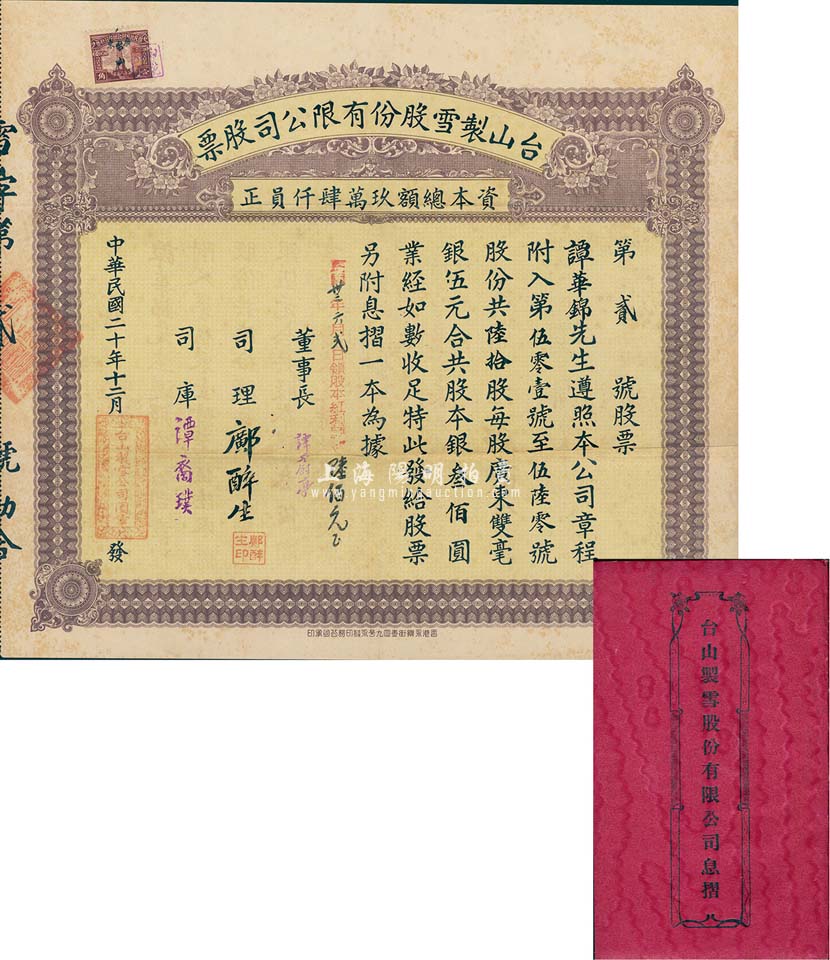 台山製雪股份有限公司股票
資本總額玖萬肆仟員正
第貳號股票
譚華錦先生遵照本公司章程
附入第伍零壹號至伍陸零號
股份共陸拾股每股廣東雙毫
銀伍元合共股本銀叁佰圓
業經如數收足特此發給股票
另附息摺一本為據
陸佰元正
董事長
司理 鄺醉生
鄺醉生印
司庫 譚裔璞
中華民國二十年十二月 發
上海陽明拍賣
www.yangmingauction.com
台山製雪股份有限公司息摺